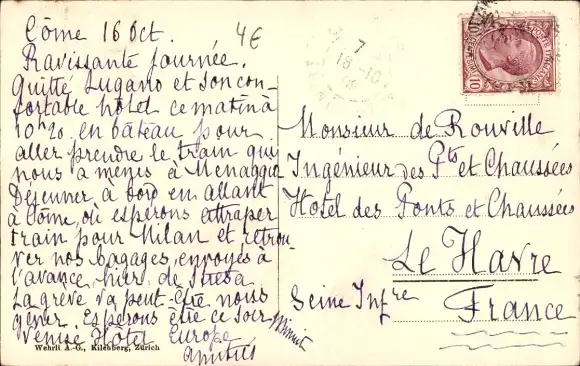 Côme 16 Oct. 4€
Ravissante journée.
Quitté Lugano et son con-
fortable hôtel ce matin à
10h20. en bateau pour
aller prendre le train qui
nous a menés à Menaggio
Déjeuner à bord en allant
à Côme, où espérons attraper
train pour Milan et retrou-
ver nos bagages envoyés à
l'avance, hier de Stresa
La grève va peut-être nous
gêner. Espérons être ce soir minuit
Venise Hôtel Europe
amitiés
Wehrli A.-G., Kilchberg, Zürich
7
18-10
10
Monsieur de Rouville
Ingénieur des Pts et Chaussées
Hotel des Ponts et Chaussées
Le Havre
Seine Infre
France